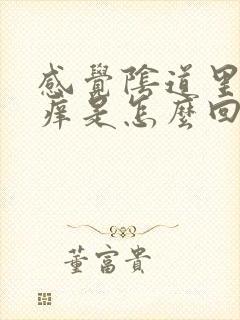 感覺陰道里
痒是怎麼回
董富貴